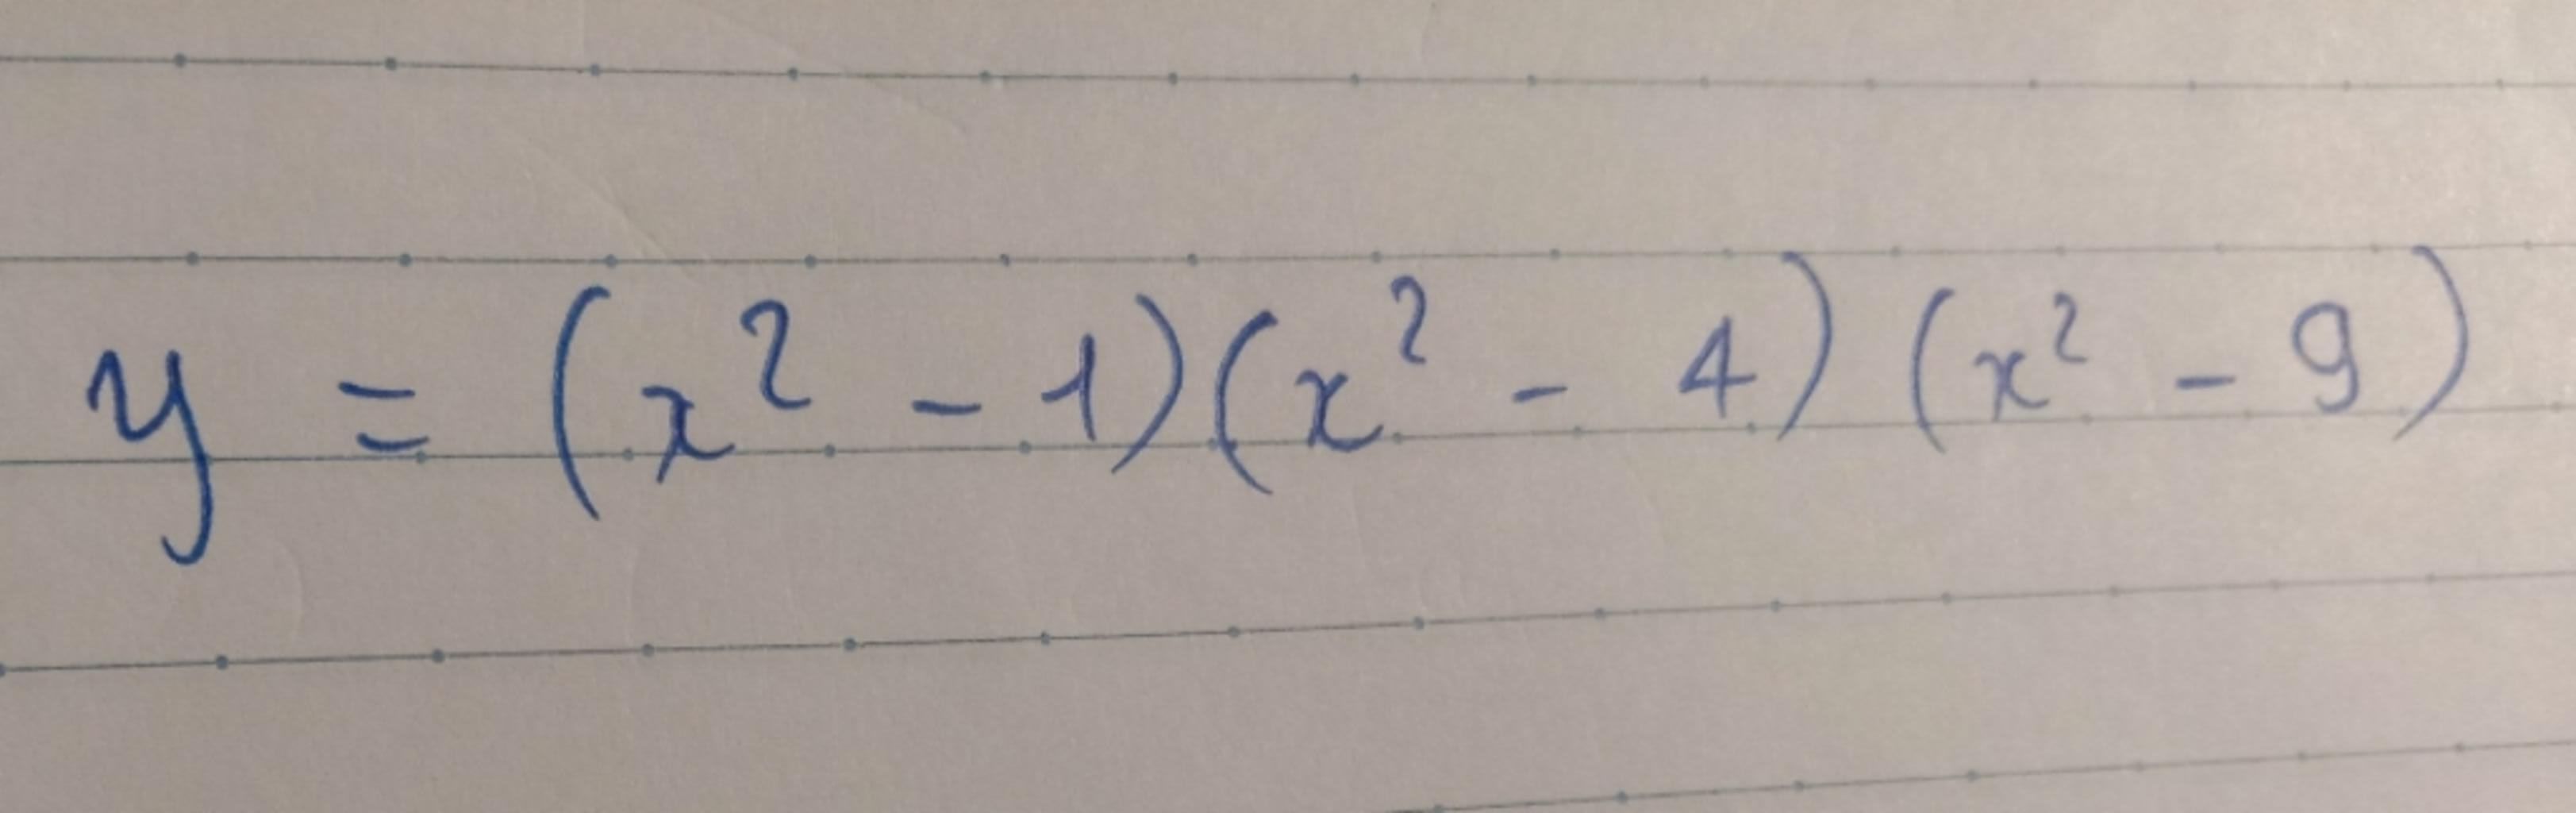 y = (x² - 1)(x² - 4)(x² - 9)